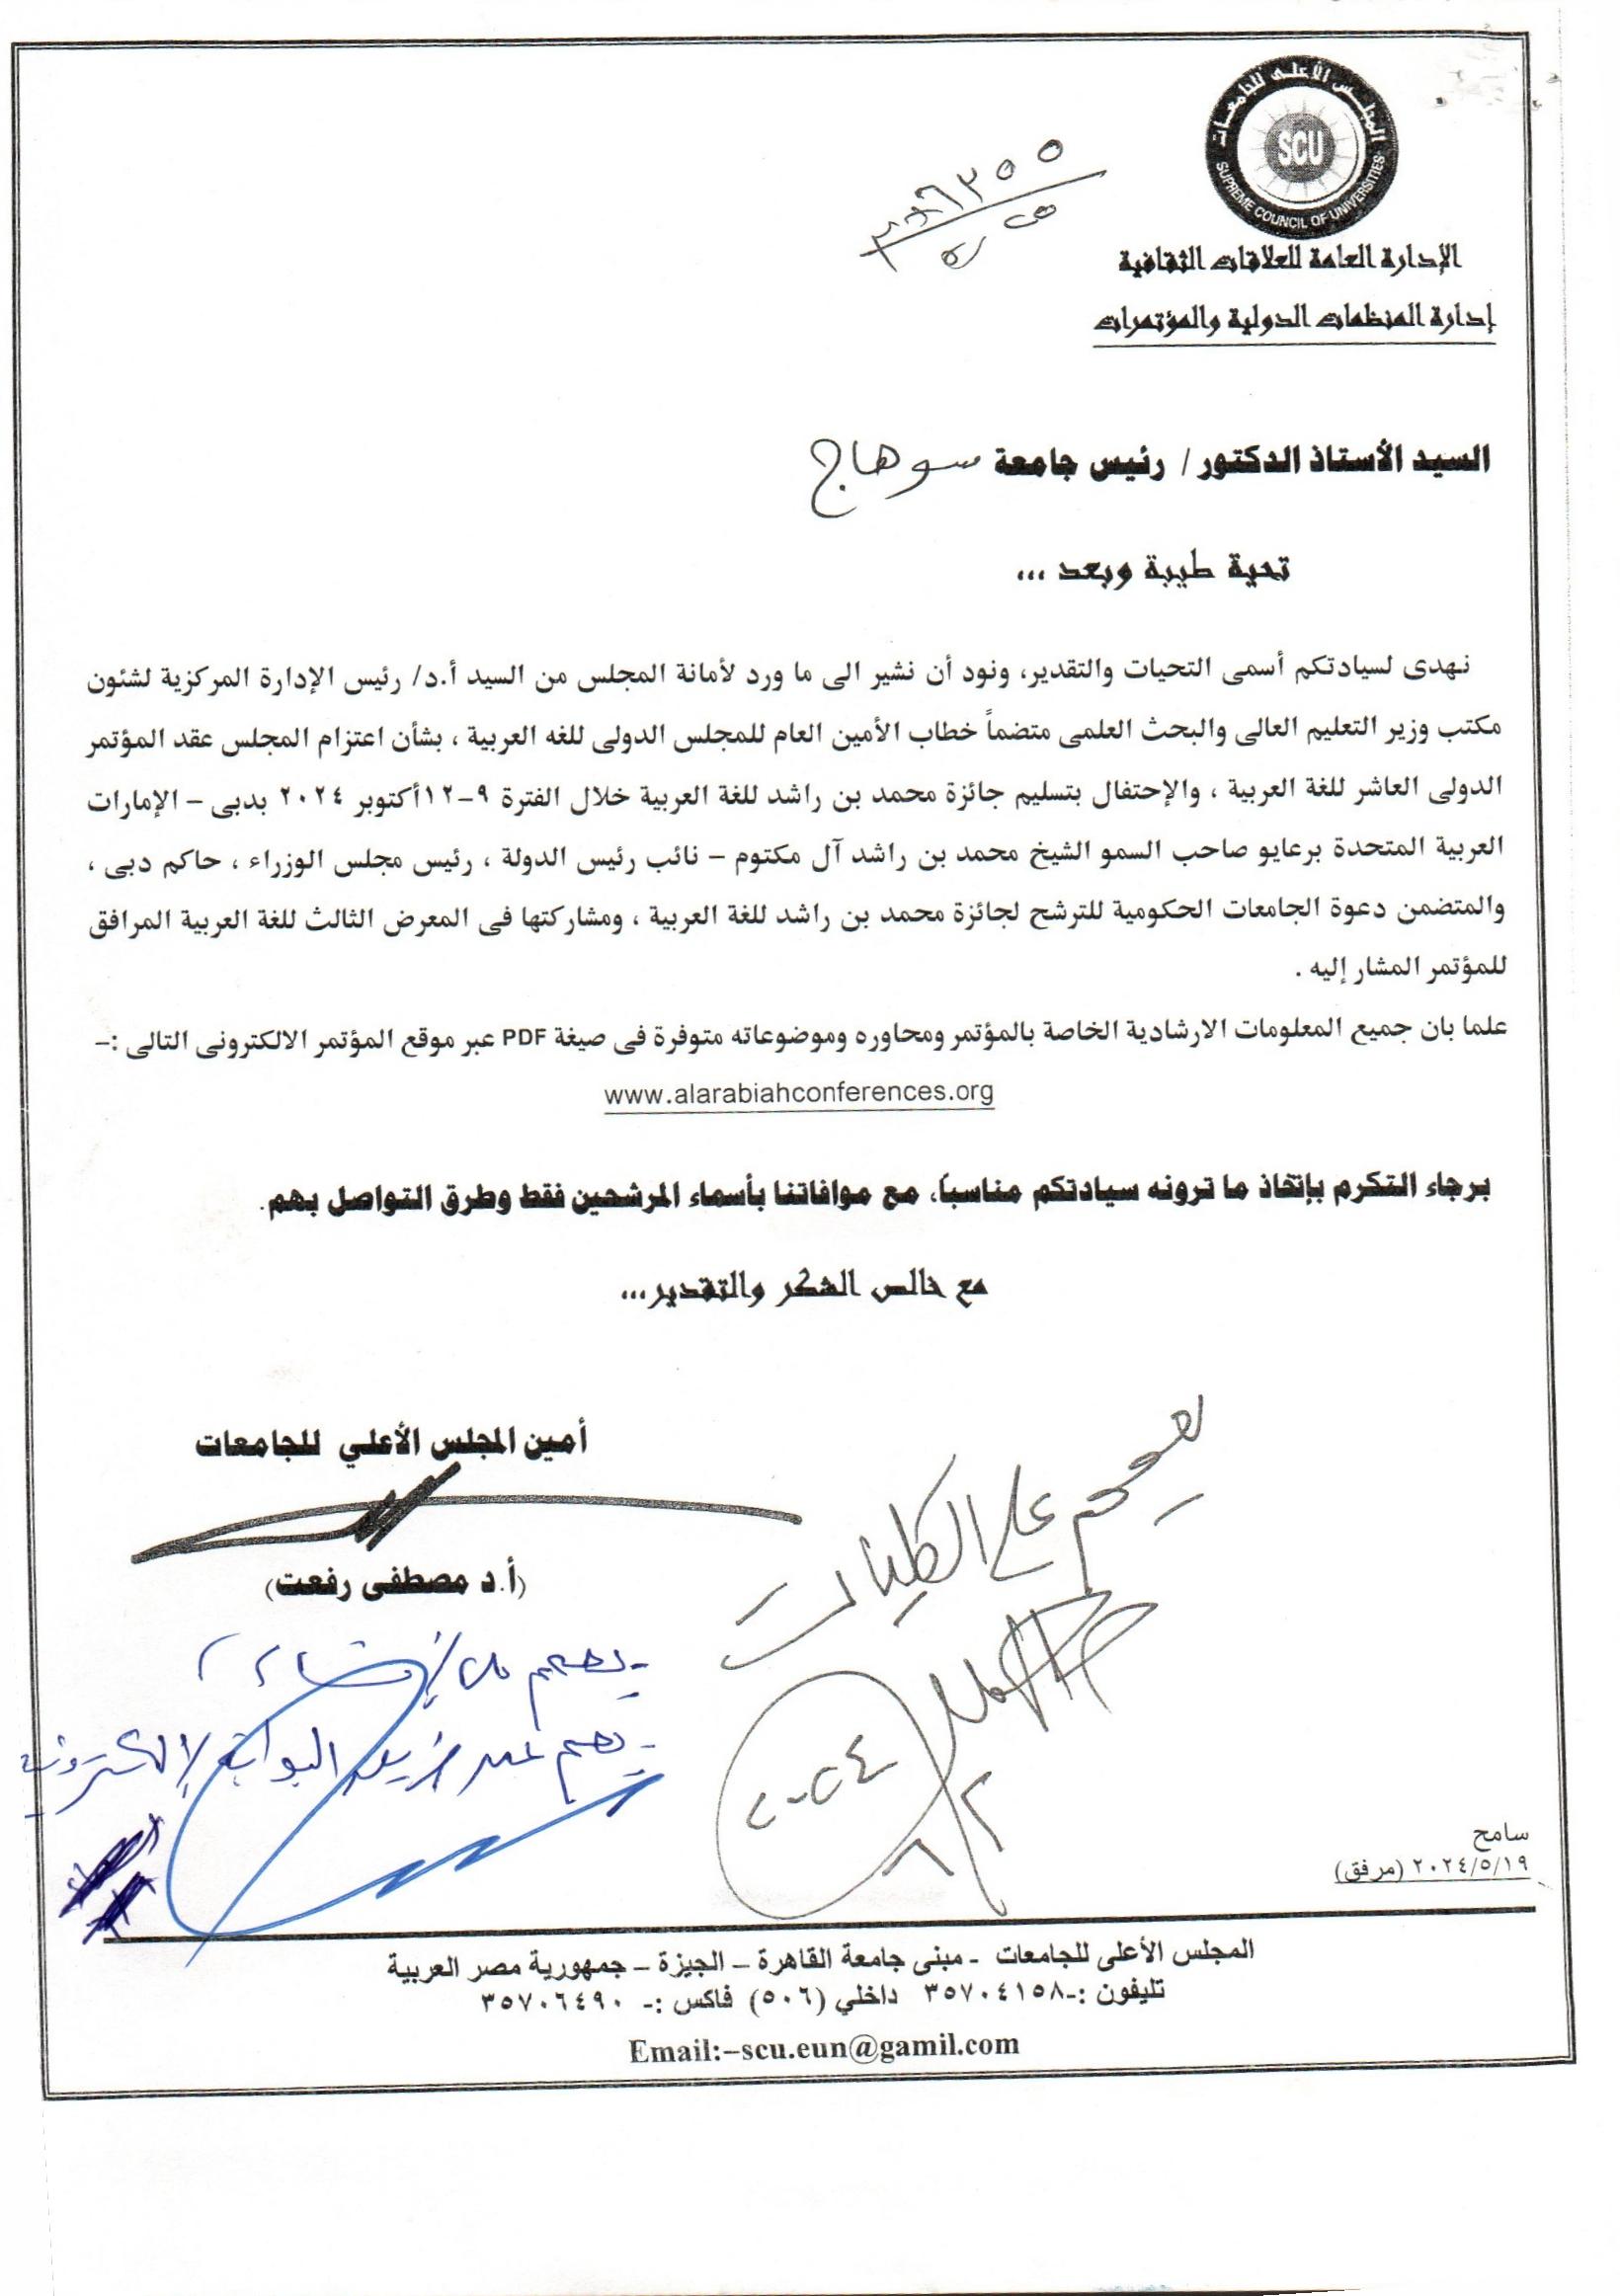 المجلس الأعلى للجامعات
SCU
SUPREME COUNCIL OF UNIVERSITIES
الإدارة العامة للعلاقات الثقافية
إدارة المنظمات الدولية والمؤتمرات
السيد الأستاذ الدكتور/ رئيس جامعة سوهاج
تحية طيبة وبعد ...
نهدى لسيادتكم أسمى التحيات والتقدير، ونود أن نشير الى ما ورد لأمانة المجلس من السيد أ.د/ رئيس الإدارة المركزية لشئون
مكتب وزير التعليم العالى والبحث العلمى متضماً خطاب الأمين العام للمجلس الدولى للغه العربية ، بشأن اعتزام المجلس عقد المؤتمر
الدولى العاشر للغة العربية ، والإحتفال بتسليم جائزة محمد بن راشد للغة العربية خلال الفترة ٩-١٢أكتوبر ٢٠٢٤ بدبى – الإمارات
العربية المتحدة برعايو صاحب السمو الشيخ محمد بن راشد آل مكتوم – نائب رئيس الدولة ، رئيس مجلس الوزراء ، حاكم دبى ،
والمتضمن دعوة الجامعات الحكومية للترشح لجائزة محمد بن راشد للغة العربية ، ومشاركتها فى المعرض الثالث للغة العربية المرافق
للمؤتمر المشار إليه .
علما بان جميع المعلومات الارشادية الخاصة بالمؤتمر ومحاوره وموضوعاته متوفرة فى صيغة PDF عبر موقع المؤتمر الالكترونى التالى :-
www.alarabiahconferences.org
برجاء التكرم بإتخاذ ما ترونه سيادتكم مناسباً، مع موافاتنا بأسماء المرشحين فقط وطرق التواصل بهم.
مع خالص الشكر والتقدير...
أمين المجلس الأعلي للجامعات
(أ.د مصطفى رفعت)
يعمم على الكليات
٢٠٢٤
البوابة الالكترونية
سامح
٢٠٢٤/٥/١٩ (مرفق)
المجلس الأعلى للجامعات - مبنى جامعة القاهرة – الجيزة – جمهورية مصر العربية
تليفون :-٣٥٧٠٤١٥٨ داخلي (٥٠٦) فاكس :- ٣٥٧٠٦٤٩٠
Email:–scu.eun@gamil.com